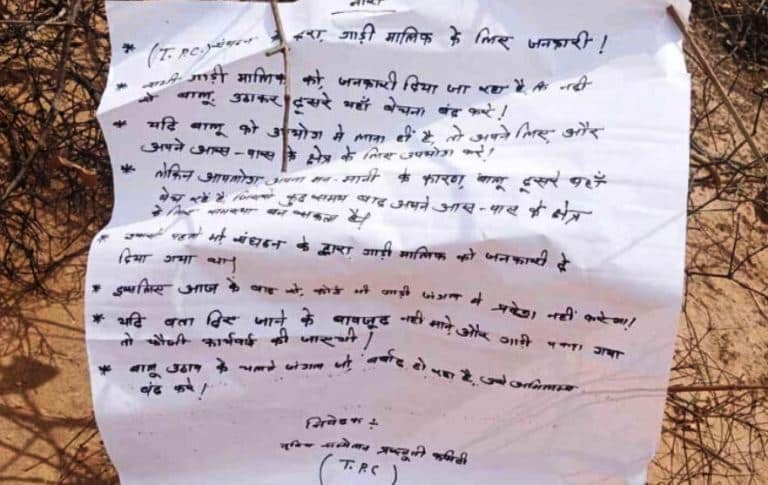 * (T.P.C.) संगठन के द्वारा गाड़ी मालिक के लिए जनकारी !
* सभी गाड़ी मालिक को, जनकारी दिया जा रहा है कि नदी
से बालू उठाकर दूसरे यहाँ बेचना बंद करे !
* यदि बालू को उपयोग मे लाना ही है, तो अपने लिए और
अपने आस-पास के क्षेत्र के लिए उपयोग करे !
* लेकिन आपलोग अपना मन-मानी के कारण, बालू दूसरे यहाँ
बेच रहे है, जिससे कुछ समय बाद अपने आस-पास के क्षेत्र
के लिए समस्या बन सकता है।
* इससे पहले भी संगठन के द्वारा गाड़ी मालिक को जनकारी दे
दिया गया था।
* इसलिए आज के बाद से, कोई भी गाड़ी जंगल मे प्रवेश नहीं करेगा!
* यदि बता दिए जाने के बावजूद नही माने और गाड़ी पकड़ा गया
तो फौजी कार्यवाई की जाएगी !
* बालू उठाव के चलते जंगल जो बर्बाद हो रहा है, उसे अविलम्ब
बंद करे !
निवेदक :-
तृतीय सम्मेलन प्रस्तुती कमिटी
(T.P.C)